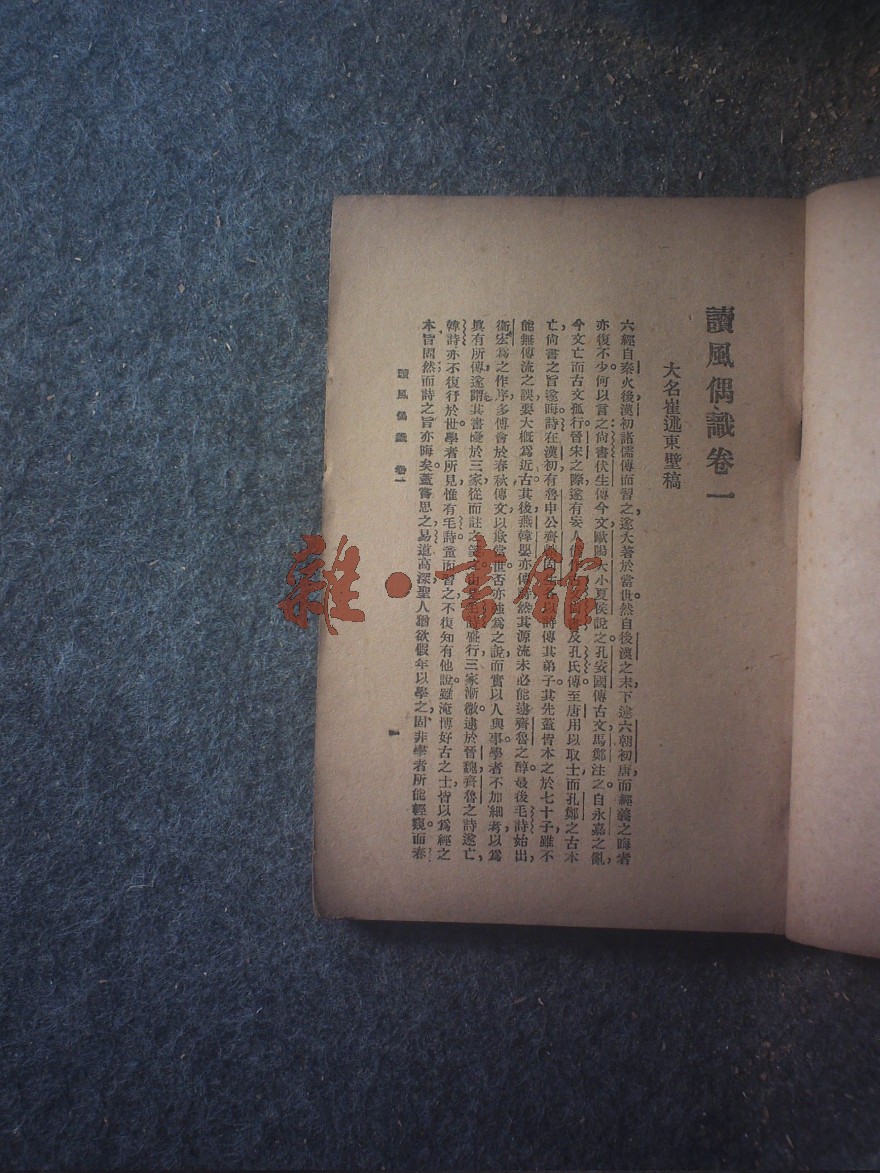 讀風偶識卷一
大名崔述東壁稿
六經自秦火後,漢初諸儒傳而習之,遂大著於當世。然自後漢之末,下逮六朝初唐,而經義之晦者
亦復不少。何以言之?尚書伏生傳今文,歐陽大小夏侯說之。孔安國傳古文,馬鄭注之。自永嘉之亂,
今文亡而古文孤行。晉宋之際,遂有妄人及孔氏傳。至唐用以取士,而孔鄭之古本
亡,尚書之旨遂晦。詩在漢初,有魯申公,齊以詩傳其弟子。其先蓋皆本之於七十子,雖不
能無傳流之誤,要大概為近古。其後燕韓嬰亦傳詩,然其源流未必能逮齊魯之醇。最後毛詩始出,
衛宏為之作序,多傅會於春秋傳文以欺當世。否亦強為之說,而實以人與事。學者不加細考,以為
真有所傳,遂謂其書優於三家,從而註之。盛行,三家漸微。逮於晉魏,齊魯之詩遂亡,
韓詩亦不復行於世。學者所見惟有毛詩,童而習之,不復知有他說。雖淹博好古之士,皆以為經之
本旨固然,而詩之旨亦晦矣。蓋嘗思之,易道高深,聖人猶欲假年以學之,固非學者所能輕窺。而春
讀風偶識 卷一
一
雜·書館